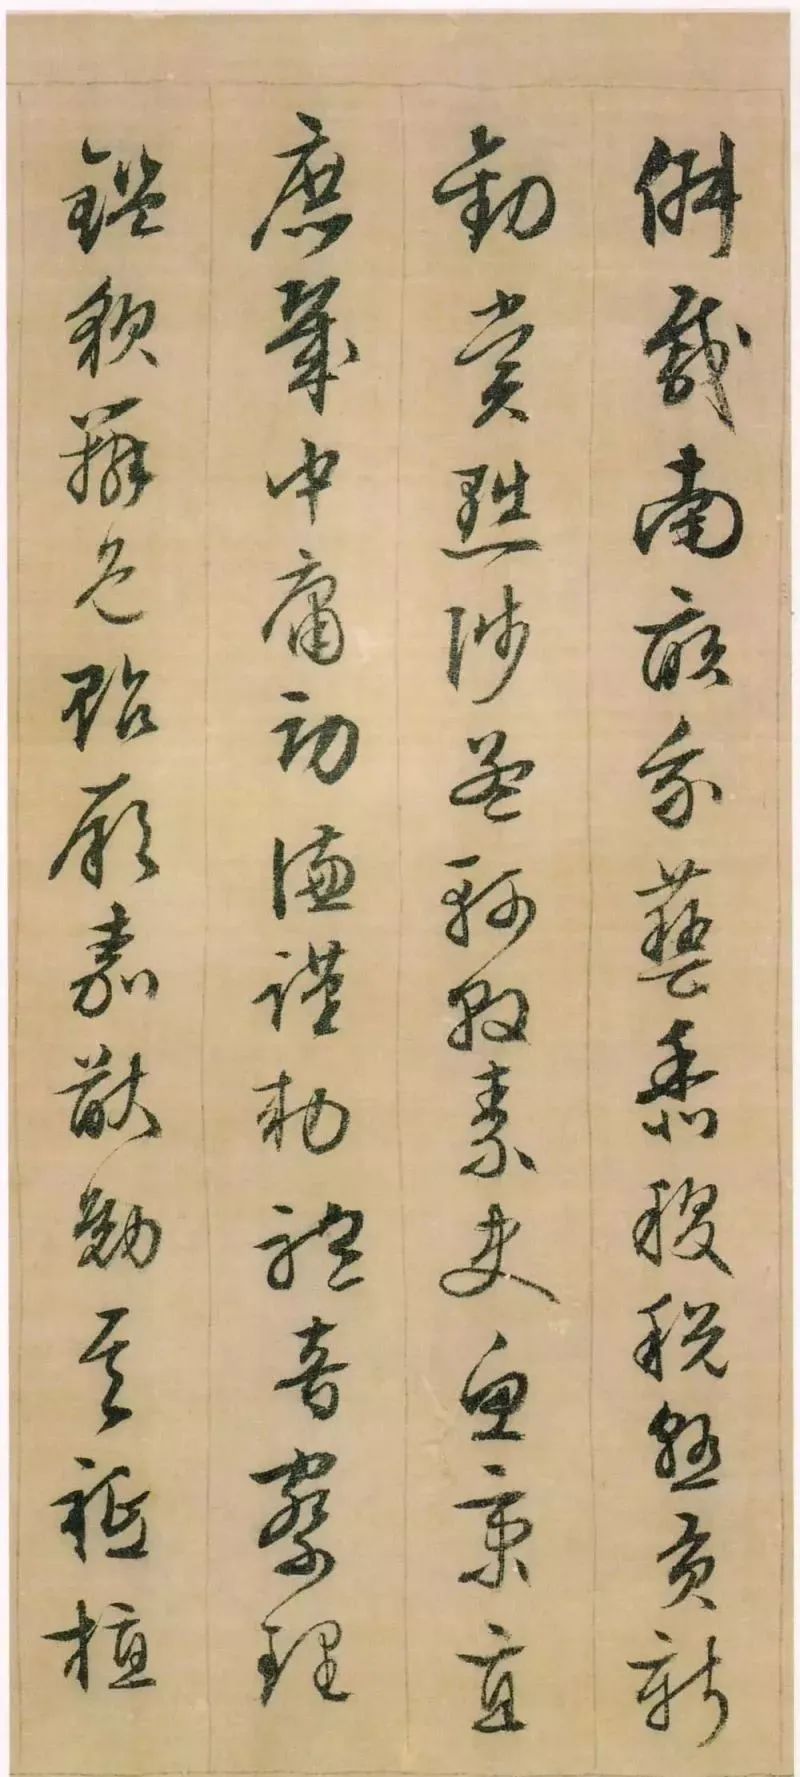 俶載南畝我藝黍稷稅熟貢新
勸賞黜陟孟軻敦素史魚秉直
庶幾中庸勞謙謹勅聆音察理
鑑貌辨色貽厥嘉猷勉其祗植